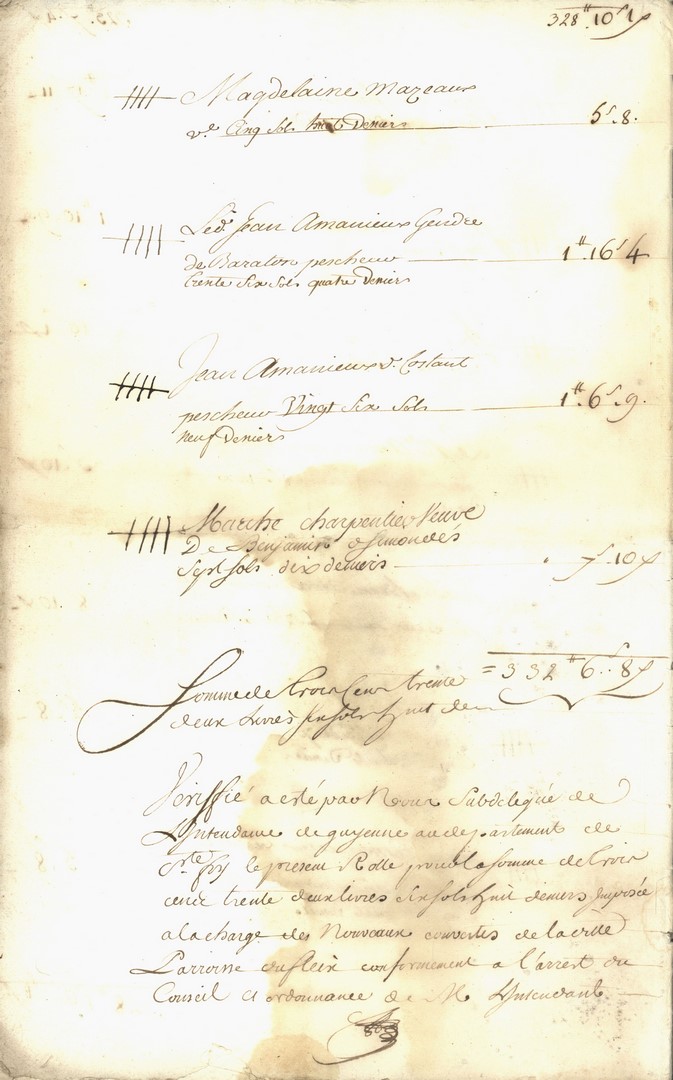 328# 10s 1d
Magdelaine Mazeaux
ve. Cinq sols huit Deniers 5s. 8.
Led. Jean Amanieux Gendre
de Baraton pescheur 1# 16s 4
trente six sols quatre Deniers
Jean Amanieux d. Costant
pescheur Vingt six sols 1# 6s. 9.
neuf Deniers
Marthe charpentier Veuve
De Benjamin Simondes
Sept sols dix deniers 7s 10d
= 332# 6s. 8d
Somme de trois Cens trente
deux Livres six sols huit den
Veriffié a esté par Nous Subdelegué de
L'Yntendance de guyenne au departement de
Ste foy le present Rolle pour la somme de trois
cens trente deux livres six sols huit deniers Imposée
a la charge des Nouveaux convertis de la dite
Parroisse du fleix conformement a l'arrest du
Conseil et ordonnance de M. L'Yntendant